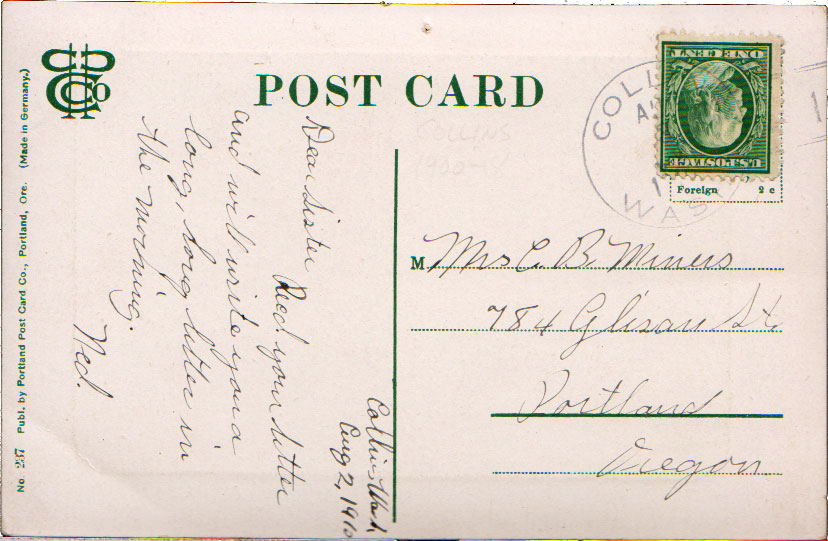 POST CARD
Collins, Wash
Aug 2, 1910
Dear Sister
Recd your letter
and will write you a
long, long letter in
the morning.
Ned.
M Mrs C. B. Miners
784 Glisan St.
Portland
Oregon
ONE CENT
U.S. POSTAGE
Foreign 2 c
COLLI
WAS
No. 237 Publ. by Portland Post Card Co., Portland, Ore. (Made in Germany.)